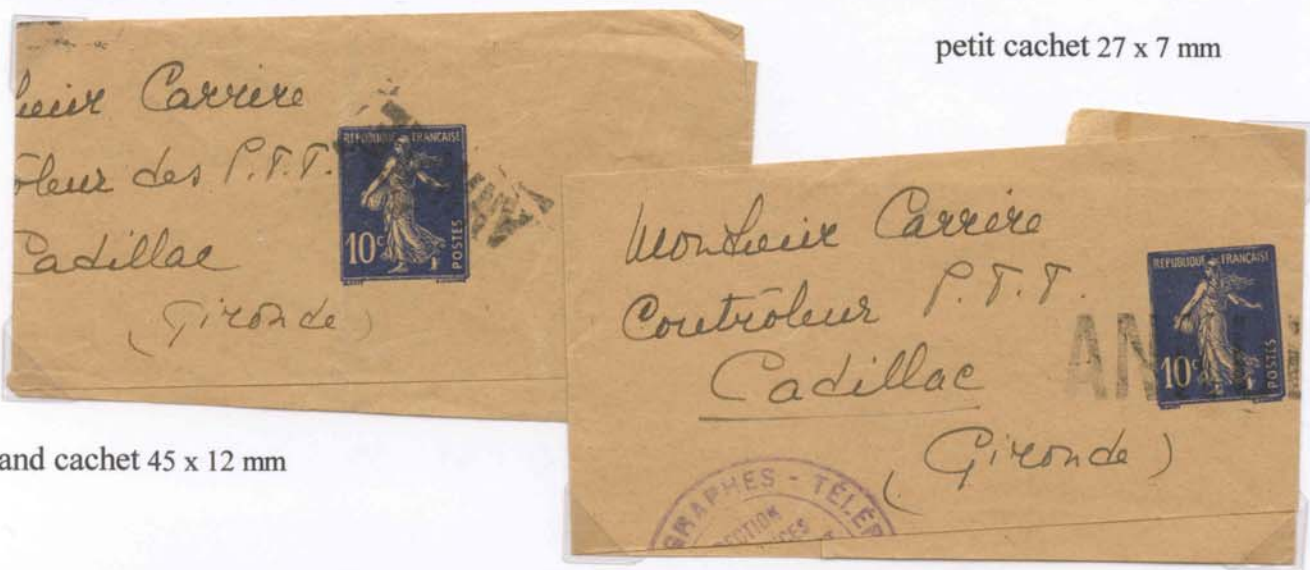 petit cachet 27 x 7 mm
sieur Carrere
ôleur des P.T.T.
Cadillac
(Gironde)
REPUBLIQUE FRANÇAISE
10c
POSTES
and cachet 45 x 12 mm
Monsieur Carrere
Contrôleur P.T.T.
Cadillac
(Gironde)
REPUBLIQUE FRANÇAISE
10c
POSTES
AN
GRAPHES - TÉLÉP